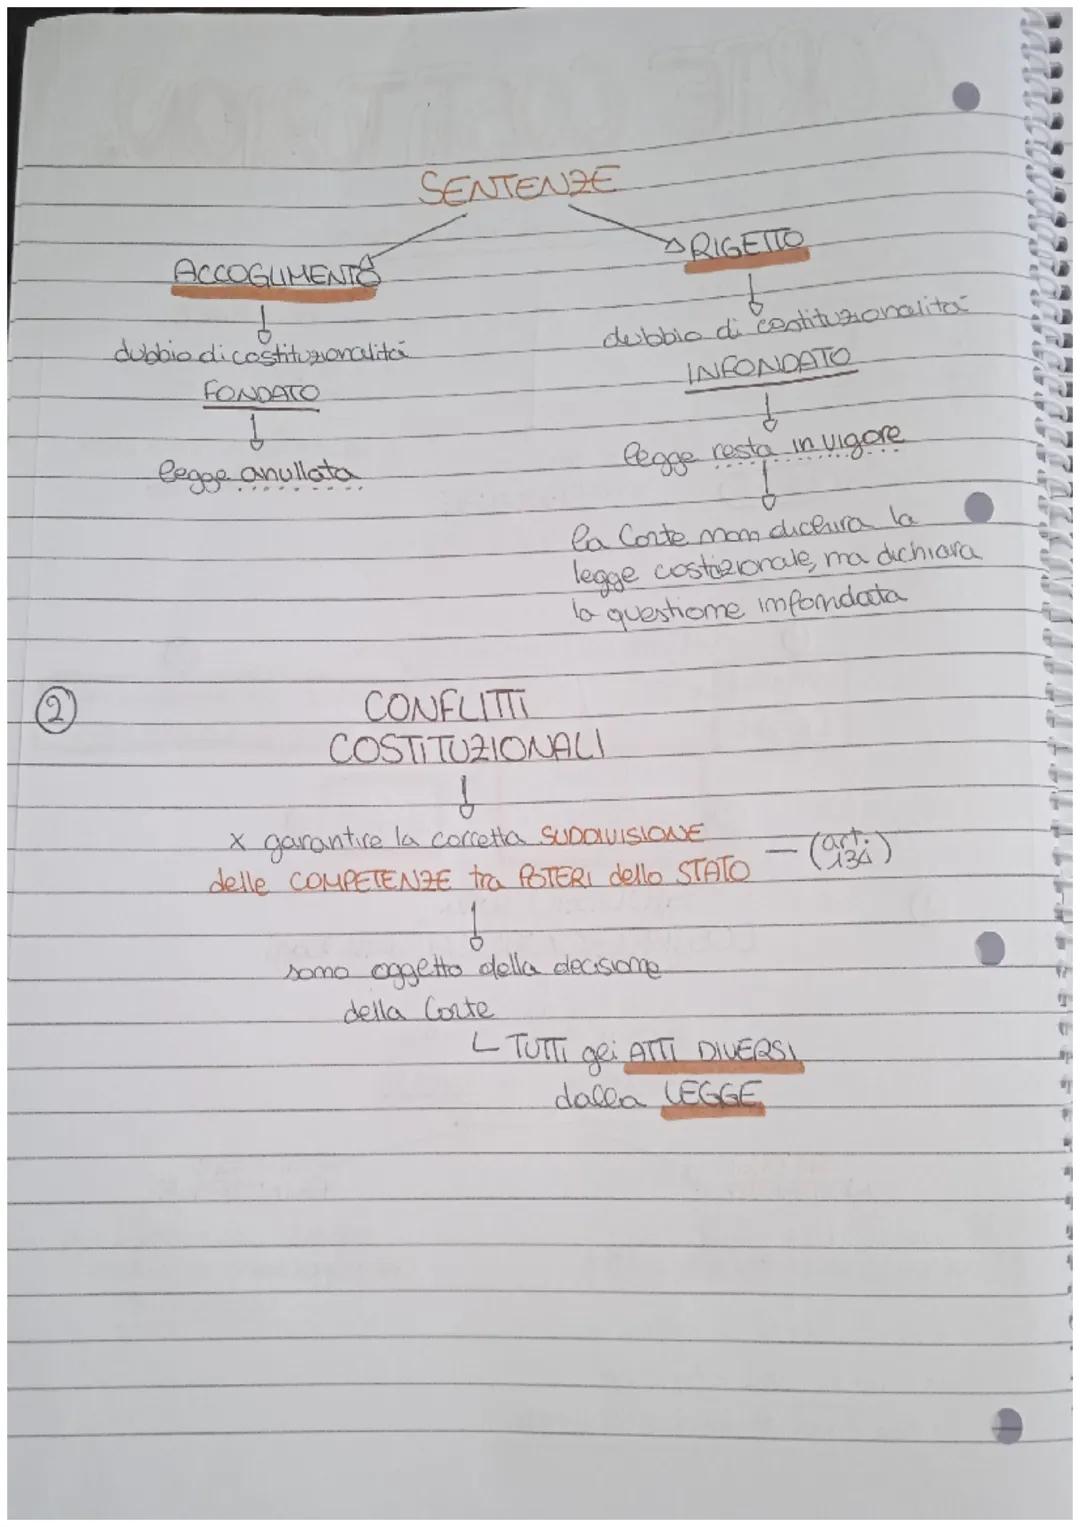 SENTENZE
ACCOGLIMENTO
RIGETTO
dubbio di costituzionalità
FONDATO
legge anullata
dubbio di costituzionalità
INFONDATO
legge resta in vigore
la Corte non dichiara la
legge costizionale, ma dichiara
la questione infondata
2
CONFLITTI
COSTITUZIONALI
x garantire la corretta SUDDIVISIONE
delle COMPETENZE tra POTERI dello STATO — (art. 134)
sono oggetto della decisione
della Corte
TUTTI gli ATTI DIVERSI
dalla LEGGE